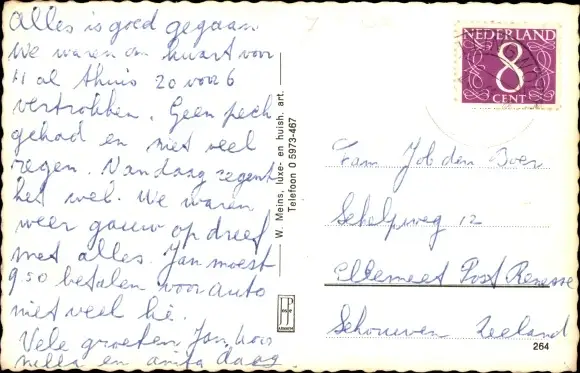 Alles is goed gegaan.
We waren om kwart voor
11 al thuis 20 voor 6
vertrokken. Geen pech
gehad en niet veel
regen. Vandaag regent
het wel. We waren
weer gauw op dreef
met alles. Jan moest
9.50 betalen voor auto
niet veel hè.
Vele groeten Jan,
nella en anita daag.
W. Meins, luxe- en huish. art.
Telefoon 0 5973-467
NEDERLAND
8
CENT
Fam Job den Boer
Schelpweg 12
Ellemeet Post Renesse
Schouwen Zeeland
264